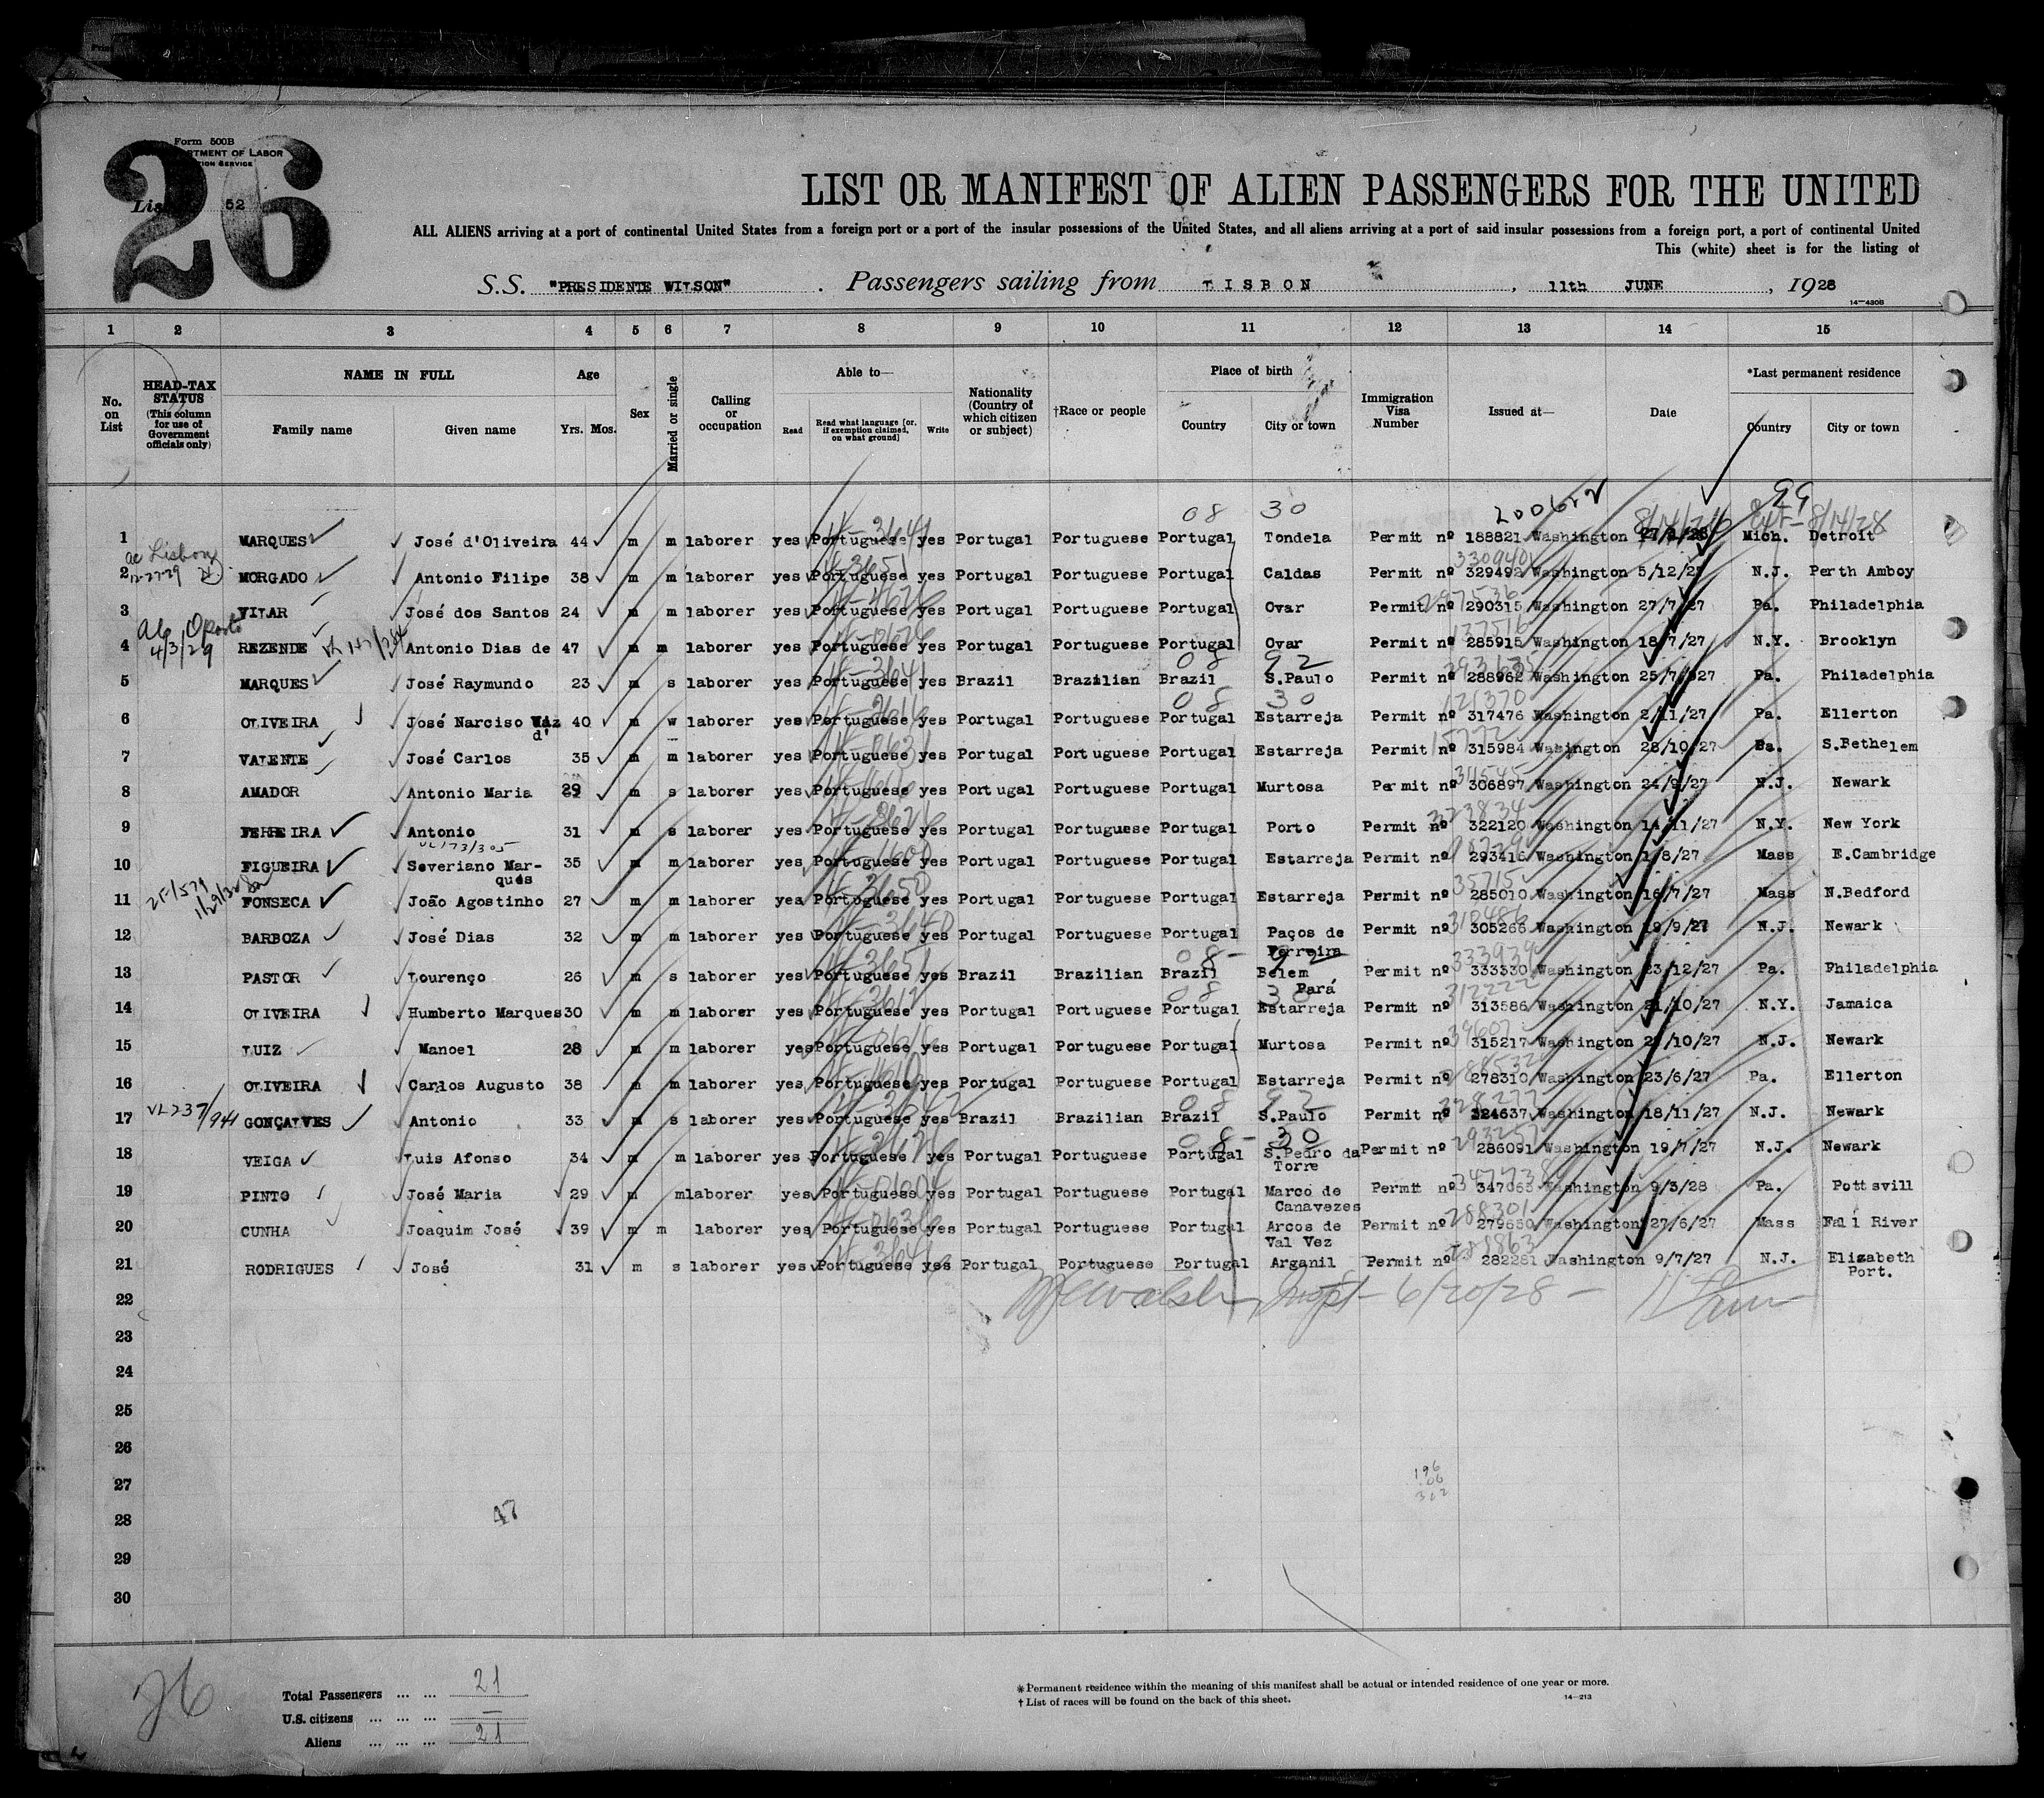 26
Form 500B
List 52
LIST OR MANIFEST OF ALIEN PASSENGERS FOR THE UNITED
ALL ALIENS arriving at a port of continental United States from a foreign port or a port of the insular possessions of the United States, and all aliens arriving at a port of said insular possessions from a foreign port, a port of continental United
This (white) sheet is for the listing of
S.S. "PRESIDENTE WILSON" . Passengers sailing from LISBON , 11th JUNE , 1928
14—430B
1 2 3 4 5 6 7 8 9 10 11 12 13 14 15
No. on List
HEAD-TAX STATUS (This column for use of Government officials only)
NAME IN FULL
Family name
Given name
Age
Yrs. Mos.
Sex
Married or single
Calling or occupation
Able to—
Read
Read what language [or, if exemption claimed, on what ground]
Write
Nationality (Country of which citizen or subject)
†Race or people
Place of birth
Country
City or town
Immigration Visa Number
Issued at—
Date
*Last permanent residence
Country
City or town
08 30 200622 99
1 MARQUES José d'Oliveira 44 m m laborer yes Portuguese yes Portugal Portuguese Portugal Tondela Permit nº 188821 Washington Mich. Detroit
ac Lisbon
12-27-29
2 MORGADO Antonio Filipe 38 m m laborer yes Portuguese yes Portugal Portuguese Portugal Caldas Permit nº 329492 Washington 5/12/27 N.J. Perth Amboy
3 VILAR José dos Santos 24 m m laborer yes Portuguese yes Portugal Portuguese Portugal Ovar Permit nº 290315 Washington 27/7/27 Pa. Philadelphia
ac Oporto
4/3/29
4 REZENDE Antonio Dias de 47 m m laborer yes Portuguese yes Portugal Portuguese Portugal Ovar Permit nº 285915 Washington 18/7/27 N.Y. Brooklyn
08 92
5 MARQUES José Raymundo 23 m s laborer yes Portuguese yes Brazil Brazilian Brazil S.Paulo Permit nº 288962 Washington 25/7/27 Pa. Philadelphia
08 30
6 OLIVEIRA José Narciso Viz d' 40 m w laborer yes Portuguese yes Portugal Portuguese Portugal Estarreja Permit nº 317476 Washington 2/11/27 Pa. Ellerton
7 VALENTE José Carlos 35 m m laborer yes Portuguese yes Portugal Portuguese Portugal Estarreja Permit nº 315984 Washington 28/10/27 Pa. S.Bethelem
8 AMADOR Antonio Maria 29 m s laborer yes Portuguese yes Portugal Portuguese Portugal Murtosa Permit nº 306897 Washington 24/9/27 N.J. Newark
9 FERREIRA Antonio 31 m s laborer yes Portuguese yes Portugal Portuguese Portugal Porto Permit nº 322120 Washington 14/11/27 N.Y. New York
VL173/305
10 FIGUEIRA Severiano Marques 35 m m laborer yes Portuguese yes Portugal Portuguese Portugal Estarreja Permit nº 293416 Washington 1/8/27 Mass E.Cambridge
11 FONSECA João Agostinho 27 m m laborer yes Portuguese yes Portugal Portuguese Portugal Estarreja Permit nº 285010 Washington 16/7/27 Mass N.Bedford
12 BARBOZA José Dias 32 m m laborer yes Portuguese yes Portugal Portuguese Portugal Paços de Ferreira Permit nº 305266 Washington 19/9/27 N.J. Newark
13 PASTOR Lourenço 26 m s laborer yes Portuguese yes Brazil Brazilian Brazil Belem Pará Permit nº 333330 Washington 23/12/27 Pa. Philadelphia
14 OLIVEIRA Humberto Marques 30 m m laborer yes Portuguese yes Portugal Portuguese Portugal Estarreja Permit nº 313586 Washington 21/10/27 N.Y. Jamaica
15 LUIZ Manoel 28 m m laborer yes Portuguese yes Portugal Portuguese Portugal Murtosa Permit nº 315217 Washington /10/27 N.J. Newark
16 OLIVEIRA Carlos Augusto 38 m m laborer yes Portuguese yes Portugal Portuguese Portugal Estarreja Permit nº 278310 Washington 23/6/27 Pa. Ellerton
08 92
VL237/941
17 GONÇALVES Antonio 33 m s laborer yes Portuguese yes Brazil Brazilian Brazil S.Paulo Permit nº 324637 Washington 18/11/27 N.J. Newark
08-30
18 VEIGA Luis Afonso 34 m m laborer yes Portuguese yes Portugal Portuguese Portugal S.Pedro da Torre Permit nº 286091 Washington 19/7/27 N.J. Newark
19 PINTO José Maria 29 m m laborer yes Portuguese yes Portugal Portuguese Portugal Marco de Canavezes Permit nº 347065 Washington 9/3/28 Pa. Pottsvill
20 CUNHA Joaquim José 39 m m laborer yes Portuguese yes Portugal Portuguese Portugal Arcos de Val Vez Permit nº 279650 Washington 27/6/27 Mass Fall River
21 RODRIGUES José 31 m s laborer yes Portuguese yes Portugal Portuguese Portugal Arganil Permit nº 282281 Washington 9/7/27 N.J. Elizabeth Port.
22 Walsh, Inspt- 6/20/28 -
23
24
25
26
27
28 47
29
30
26
Total Passengers ... ... 21
U.S. citizens ... ... ... —
Aliens ... ... ... 21
* Permanent residence within the meaning of this manifest shall be actual or intended residence of one year or more.
† List of races will be found on the back of this sheet.
14—213